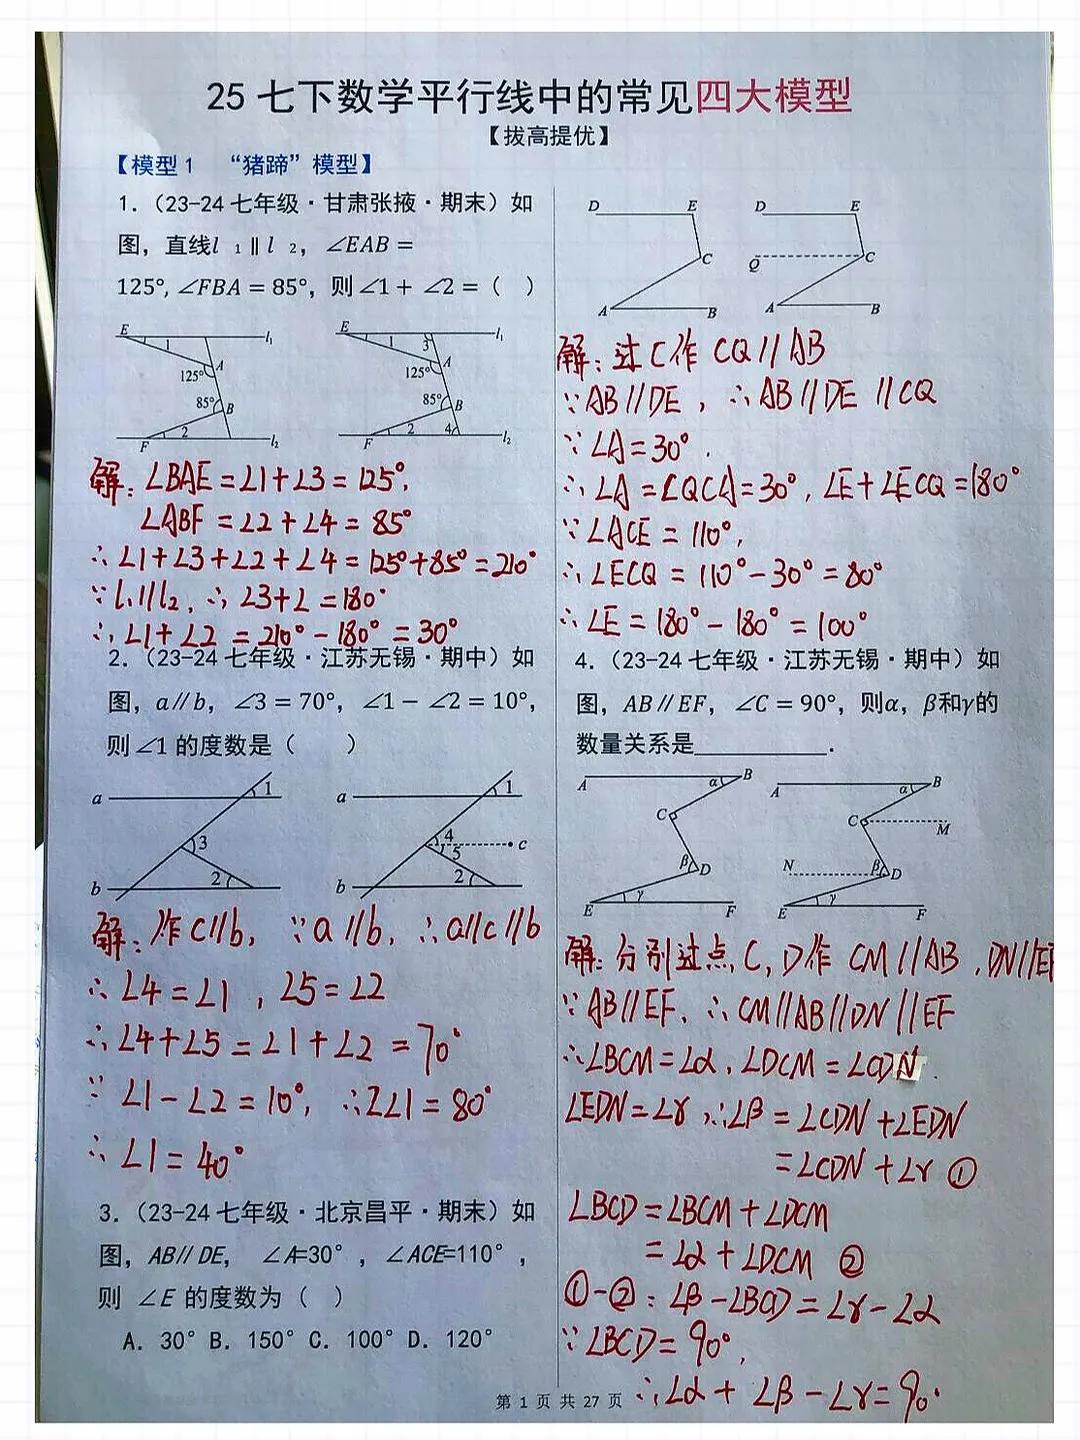 25 七下数学平行线中的常见四大模型
【拔高提优】
【模型 1 “猪蹄”模型】
1.（23-24 七年级·甘肃张掖·期末）如
图，直线l 1 ∥ l 2，∠EAB =
125°, ∠FBA = 85°，则 ∠1 + ∠2 =（ ）
E 1 l₁ A 125° 85° B 2 F l₂
E 1 3 l₁ A 125° 85° B 2 4 F l₂
解：∠BAE = ∠1+∠3 = 125°,
∠ABF = ∠2+∠4 = 85°
∴ ∠1+∠3+∠2+∠4 = 125°+85° = 210°
∵ l₁∥l₂, ∴ ∠3+∠ = 180°
∴ ∠1+∠2 = 210° - 180° = 30°
2.（23-24 七年级·江苏无锡·期中）如
图，a∥b，∠3 = 70°，∠1 − ∠2 = 10°，
则 ∠1 的度数是（ ）
a 1 3 b 2
a 1 4 c 5 b 2
解：作 c∥b, ∵ a∥b, ∴ a∥c∥b
∴ ∠4 = ∠1, ∠5 = ∠2
∴ ∠4+∠5 = ∠1+∠2 = 70°
∵ ∠1 - ∠2 = 10°, ∴ 2∠1 = 80°
∴ ∠1 = 40°
3.（23-24 七年级·北京昌平·期末）如
图，AB∥DE， ∠A=30°，∠ACE=110°，
则 ∠E 的度数为（ ）
A. 30° B. 150° C. 100° D. 120°
D E C A B
D E Q C A B
解：过 C 作 CQ∥AB
∵ AB∥DE, ∴ AB∥DE∥CQ
∵ ∠A = 30°.
∴ ∠A = ∠QCA = 30°, ∠E+∠ECQ = 180°
∵ ∠ACE = 110°,
∴ ∠ECQ = 110° - 30° = 80°
∴ ∠E = 180° - 180° = 100°
4.（23-24 七年级·江苏无锡·期中）如
图，AB∥EF，∠C = 90°，则α，β和γ的
数量关系是___________.
A α B C β D E γ F
A α B C M N β D E γ F
解：分别过点 C, D作 CM∥AB, DN∥EF
∵ AB∥EF, ∴ CM∥AB∥DN∥EF
∴ ∠BCM = ∠α, ∠DCM = ∠CDN.
∠EDN = ∠γ, ∴ ∠β = ∠CDN + ∠EDN
= ∠CDN + ∠γ ①
∠BCD = ∠BCM + ∠DCM
= ∠α + ∠DCM ②
① - ②: ∠β - ∠BCD = ∠γ - ∠α
∵ ∠BCD = 90°,
∴ ∠α + ∠β - ∠γ = 90°
第 1 页 共 27 页